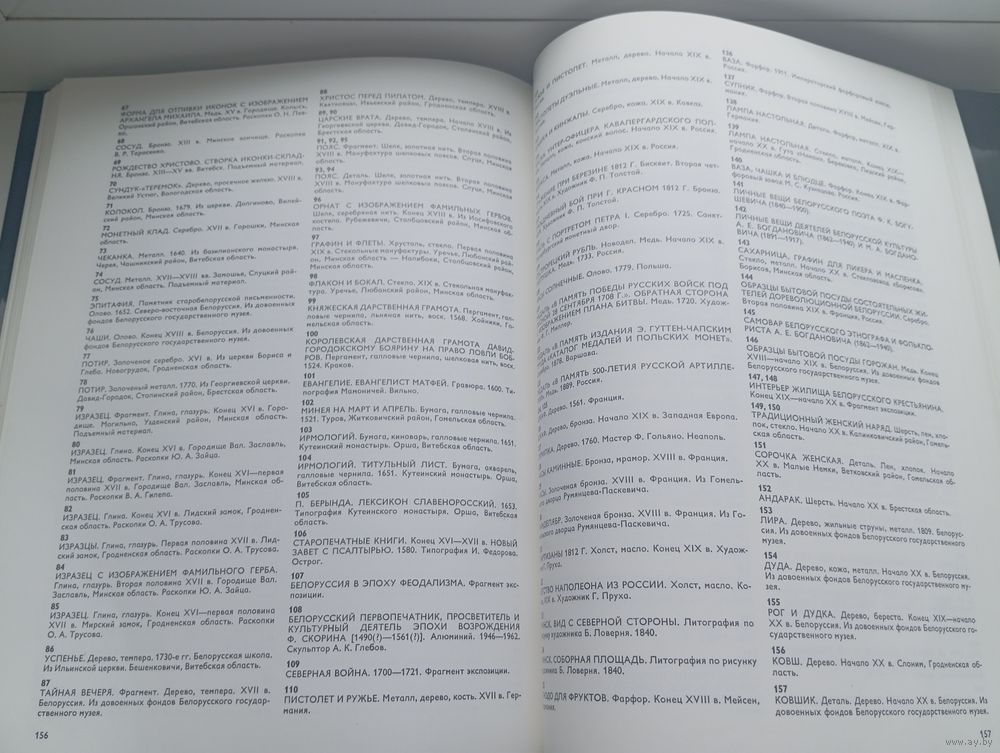 67
ФОРМА ДЛЯ ОТЛИВКИ ИКОНОК С ИЗОБРАЖЕНИЕМ
АРХАНГЕЛА МИХАИЛА. Медь. XV в.
Оршанский район, Витебская область. Раскопки О. Н.
68
СОСУД. Бронза. XIII в. Минское
В. Р. Тарасенко.
69
РОЖДЕСТВО ХРИСТОВО. СТВОРКА ИКОНКИ-СКЛАД-
НЯ. Бронза. XIII—XV вв. Витебск. Подъемный материал.
70
СУНДУК-«ТЕРЕМОК». Дерево, просечное железо. XVIII в.
Великий Устюг, Вологодская область.
71
КОЛОКОЛ. Бронза. 1679. Из церкви. Долгиново, Вилей-
ский район, Минская область.
72
МОНЕТНЫЙ КЛАД. Серебро. XVII в. Горошки, Минская
область.
73
ЧЕКАНКА. Металл. 1640. Из базилианского монастыря.
Черея, Чашникский район, Витебская область.
74
СОСУД. Металл. XVII—XVIII вв. Замошье, Слуцкий рай-
он, Минская область. Подъемный материал.
75
ЭПИТАФИЯ. Памятник старобелорусской письменности.
Олово. 1652. Северо-восточная Белоруссия. Из довоенных
фондов Белорусского государственного музея.
76
ЧАШИ. Олово. Конец XVIII в. Белоруссия. Из довоенных
фондов Белорусского государственного музея.
77
ПОТИР. Золоченое серебро. XVI в. Из церкви Бориса и
Глеба. Новогрудок, Гродненская область.
78
ПОТИР. Золоченый металл. 1770. Из Георгиевской церкви.
Давид-Городок, Столинский район, Брестская область.
79
ИЗРАЗЕЦ. Фрагмент. Глина, глазурь. Конец XVI в. Горо-
дище. Могильно, Узденский район, Минская область.
Подъемный материал.
80
ИЗРАЗЕЦ. Глина. Конец XVI в. Городище Вал. Заславль,
Минская область. Раскопки Ю. А. Зайца.
81
ИЗРАЗЕЦ. Фрагмент. Глина, глазурь. Конец XVI—первая
половина XVII в. Городище Вал. Заславль, Минская об-
ласть. Раскопки В. А. Гилепа.
82
ИЗРАЗЕЦ. Глина. Конец XVI в. Лидский замок, Гроднен-
ская область. Раскопки О. А. Трусова.
83
ИЗРАЗЦЫ. Глина, глазурь. Первая половина XVII в. Лид-
ский замок, Гродненская область. Раскопки О. А. Трусова.
84
ИЗРАЗЕЦ С ИЗОБРАЖЕНИЕМ ФАМИЛЬНОГО ГЕРБА.
Глина, глазурь. Вторая половина XVII в. Городище Вал.
Заславль, Минская область. Раскопки Ю. А. Зайца.
85
ИЗРАЗЕЦ. Глина, глазурь. Конец XVI—первая половина
XVII в. Мирский замок, Гродненская область. Раскопки
О. А. Трусова.
86
УСПЕНЬЕ. Дерево, темпера. 1730-е гг. Белорусская школа.
Из Ильинской церкви. Бешенковичи, Витебская область.
87
ТАЙНАЯ ВЕЧЕРЯ. Фрагмент. Дерево, темпера. XVII в.
Белоруссия. Из довоенных фондов Белорусского государ-
ственного музея.
156
88
ХРИСТОС ПЕРЕД ПИЛАТОМ. Дерево, темпера. XVIII в.
Ивьевский район, Гродненская область.
89, 90
ЦАРСКИЕ ВРАТА. Дерево, темпера. Начало XVIII в. Из
Георгиевской церкви. Давид-Городок, Столинский район,
Брестская область.
91, 92, 95
ПОЯС. Фрагмент. Шелк, золотная нить. Вторая половина
XVIII в. Мануфактура шелковых поясов. Слуцк, Минская
область.
93, 94
ПОЯС. Деталь. Шелк, золотная нить. Вторая половина
XVIII в. Мануфактура шелковых поясов. Слуцк, Минская
область.
96
ОРНАТ С ИЗОБРАЖЕНИЕМ ФАМИЛЬНЫХ ГЕРБОВ.
Шелк, серебряная нить. Конец XVIII в. Из Иосифовского
костела. Рубежевичи, Столбцовский район, Минская об-
ласть.
97
ГРАФИН И ФЛЕТЫ. Хрусталь, стекло. Первая половина
XIX в. Стекольные мануфактуры. Уречье, Любанский рай-
он, Минская область — Налибоки, Столбцовский район,
Минская область.
98
ФЛАКОН И БОКАЛ. Стекло. XIX в. Стекольная мануфак-
тура. Уречье, Любанский район, Минская область.
99
КНЯЖЕСКАЯ ДАРСТВЕННАЯ ГРАМОТА. Пергамент, гал-
ловые чернила, льняная нить, воск. 1568. Хойники, Го-
мельская область.
100
КОРОЛЕВСКАЯ ДАРСТВЕННАЯ ГРАМОТА ДАВИД-
ГОРОДОКСКОМУ БОЯРИНУ НА ПРАВО ЛОВЛИ БОБ-
РОВ. Пергамент, галловые чернила, шелковая нить, воск.
1524. Краков.
101
ЕВАНГЕЛИЕ. ЕВАНГЕЛИСТ МАТФЕЙ. Гравюра. 1600. Ти-
пография Мамоничей. Вильно.
102
МИНЕЯ НА МАРТ И АПРЕЛЬ. Бумага, галловые чернила.
1521. Туров, Житковичский район, Гомельская область.
103
ИРМОЛОГИЙ. Бумага, киноварь, галловые чернила. 1651.
Кутеинский монастырь. Орша, Витебская область.
104
ИРМОЛОГИЙ. ТИТУЛЬНЫЙ ЛИСТ. Бумага, акварель,
галловые чернила. 1651. Кутеинский монастырь. Орша,
Витебская область.
105
П. БЕРЫНДА, ЛЕКСИКОН СЛАВЕНОРОССКИЙ. 1653.
Типография Кутеинского монастыря. Орша, Витебская
область.
106
СТАРОПЕЧАТНЫЕ КНИГИ. Конец XVI—XVII в. НОВЫЙ
ЗАВЕТ С ПСАЛТЫРЬЮ. 1580. Типография И. Федорова.
Острог.
107
БЕЛОРУССИЯ В ЭПОХУ ФЕОДАЛИЗМА. Фрагмент экс-
позиции.
108
БЕЛОРУССКИЙ ПЕРВОПЕЧАТНИК, ПРОСВЕТИТЕЛЬ И
КУЛЬТУРНЫЙ ДЕЯТЕЛЬ ЭПОХИ ВОЗРОЖДЕНИЯ
Ф. СКОРИНА [1490(?)—1561(?)]. Алюминий. 1946—1962.
Скульптор А. К. Глебов.
109
СЕВЕРНАЯ ВОЙНА. 1700—1721. Фрагмент экспозиции.
110
ПИСТОЛЕТ И РУЖЬЕ. Металл, дерево, кость. XVII в. Гер-
мания.
И ПИСТОЛЕТ. Металл, дерево. Начало XIX в.
ДУЭЛЬНЫЕ. Металл, дерево. Начало XIX в.
И КИНЖАЛЫ. Серебро, кожа. XIX в. Кавказ.
УНТЕР-ОФИЦЕРА КАВАЛЕРГАРДСКОГО ПОЛ-
кожа, конский волос. Начало XIX в. Россия.
Металл, кожа. Начало XIX в. Россия.
ПРИ БЕРЕЗИНЕ 1812 Г. Бисквит. Вторая чет-
Художник Ф. П. Толстой.
БОЙ ПРИ Г. КРАСНОМ 1812 Г. Бронза.
Художник Ф. П. Толстой.
С ПОРТРЕТОМ ПЕТРА I. Серебро. 1725. Санкт-
монетный двор.
РУБЛЬ. Новодел. Медь. Начало XIX в.
Медь. 1733. Россия.
СОЛНЕЧНЫЕ. Олово. 1779. Польша.
«В ПАМЯТЬ ПОБЕДЫ РУССКИХ ВОЙСК ПОД
28 СЕНТЯБРЯ 1708 Г.». ОБРАТНАЯ СТОРОНА
ПЛАНА БИТВЫ. Медь. 1720. Худож-
Г. Миллер.
«В ПАМЯТЬ ИЗДАНИЯ Э. ГУТТЕН-ЧАПСКИМ
«КАТАЛОГ МЕДАЛЕЙ И ПОЛЬСКИХ МОНЕТ».
1878. Варшава.
«В ПАМЯТЬ 500-ЛЕТИЯ РУССКОЙ АРТИЛЛЕ-
Медь. 1889. Россия.
Дерево. 1561. Франция.
Дерево. Начало XIX в. Западная Европа.
Дерево. 1760. Мастер Ф. Гольяно. Неаполь.
КАМИННЫЕ. Бронза, мрамор. XVIII в. Франция.
Золоченая бронза. XVIII в. Франция. Из Гомель-
дворца Румянцева-Паскевича.
Золоченая бронза. XVIII в. Франция. Из Го-
дворца Румянцева-Паскевича.
1812 Г. Холст, масло. Конец XIX в. Худож-
Г. Пруха.
НАПОЛЕОНА ИЗ РОССИИ. Холст, масло. Ко-
XIX в. Художник Г. Пруха.
ВИД С СЕВЕРНОЙ СТОРОНЫ. Литография по
художника Б. Ловерня. 1840.
СОБОРНАЯ ПЛОЩАДЬ. Литография по рисунку
Б. Ловерня. 1840.
ДЛЯ ФРУКТОВ. Фарфор. Конец XVIII в. Мейсен,
136
ВАЗА. Фарфор. 1911. Императорский фарфоровый завод.
Россия.
137
СУПНИК. Фарфор. Вторая половина XVIII в. Мейсен, Гер-
мания.
138
ЛАМПА НАСТОЛЬНАЯ. Деталь. Фарфор. XIX в. Мейсен,
Германия.
139
ЛАМПА НАСТОЛЬНАЯ. Стекло, металл. Конец XIX—
начало XX в.
Гродненская область.
140
ВАЗА, ЧАШКА И БЛЮДЦЕ. Фарфор. Конец XIX в. Фар-
форовый завод М. С. Кузнецова. Россия.
141
ЛИЧНЫЕ ВЕЩИ БЕЛОРУССКОГО ПОЭТА Ф. К. БОГУ-
ШЕВИЧА (1840—1900).
142
ЛИЧНЫЕ ВЕЩИ ДЕЯТЕЛЕЙ БЕЛОРУССКОЙ КУЛЬТУРЫ
А. Е. БОГДАНОВИЧА (1862—1940) И М. А. БОГДАНО-
ВИЧА (1891—1917).
143
САХАРНИЦА, ГРАФИН ДЛЯ ЛИКЕРА И МАСЛЕНКА.
Стекло, металл. Начало XX в. Стеклозавод
Борисов, Минская область.
144
ОБРАЗЦЫ БЫТОВОЙ ПОСУДЫ СОСТОЯТЕЛЬНЫХ ЖИ-
ТЕЛЕЙ ДОРЕВОЛЮЦИОННОЙ БЕЛОРУССИИ. Серебро.
Вторая половина XIX в. Франция, Россия.
145
САМОВАР БЕЛОРУССКОГО ЭТНОГРАФА И ФОЛЬКЛО-
РИСТА А. Е. БОГДАНОВИЧА (1862—1940).
146
ОБРАЗЦЫ БЫТОВОЙ ПОСУДЫ ГОРОЖАН. Медь. Конец
XVIII—начало XX в. Белоруссия. Из довоенных фондов
Белорусского государственного музея.
147, 148
ИНТЕРЬЕР ЖИЛИЩА БЕЛОРУССКОГО КРЕСТЬЯНИНА.
Конец XIX—начало XX в. Фрагмент экспозиции.
149, 150
ТРАДИЦИОННЫЙ ЖЕНСКИЙ НАРЯД. Шерсть, лен, хло-
пок, стекло. Начало XX в. Калинковичский район, Гомель-
ская область.
151
СОРОЧКА ЖЕНСКАЯ. Деталь. Лен, хлопок. Начало
XX в. Малые Немки, Ветковский район, Гомельская об-
ласть.
152
АНДАРАК. Шерсть. Начало XX в. Брестская область.
153
ЛИРА. Дерево, жильные струны, металл. 1809. Белорус-
сия. Из довоенных фондов Белорусского государственного
музея.
154
ДУДА. Дерево, кожа, металл. Начало XX в. Белоруссия.
Из довоенных фондов Белорусского государственного му-
зея.
155
РОГ И ДУДКА. Дерево, береста. Конец XIX—начало
XX в. Белоруссия. Из довоенных фондов Белорусского го-
сударственного музея.
156
КОВШ. Дерево. Начало XX в. Слоним, Гродненская об-
ласть.
157
КОВШИК. Деталь. Дерево. Начало XX в. Белоруссия. Из
довоенных фондов Белорусского государственного музея.
157
www.ay.by